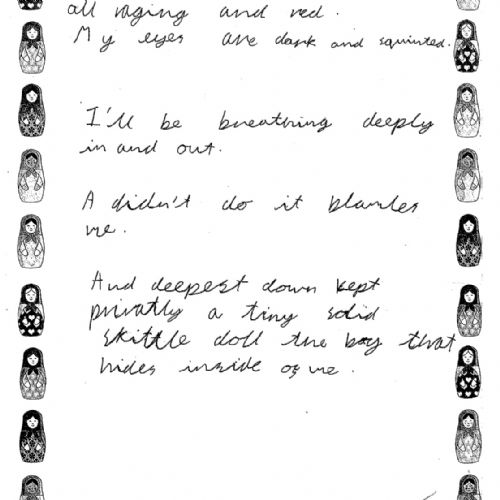 all raging and red.
My eyes are dark and squinted.
I'll be breathing deeply
in and out.
A didn't do it blames
me.
And deepest down kept
privatly a tiny solid
skittle doll the boy that
hides inside of me.